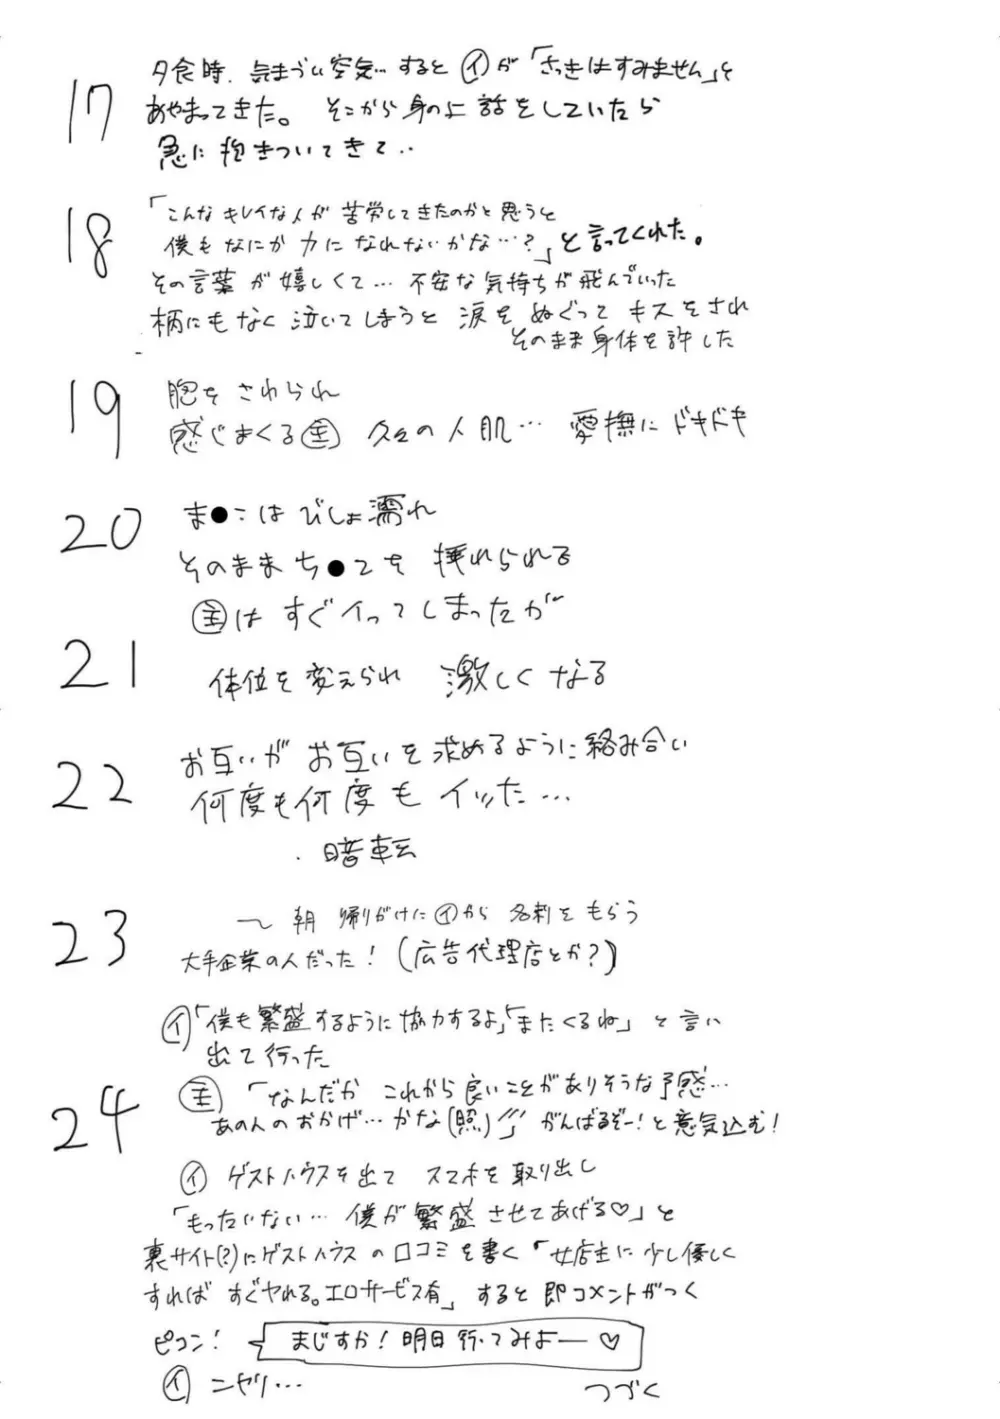 17
夕食時、気まづい空気…すると ㋑が「さっきはすみません」と
あやまってきた。 そこから身の上話をしていたら
急に抱きついてきて…
18
「こんなキレイな人が苦労してきたのかと思うと
僕もなにか力になれないかな…?」と言ってくれた。
その言葉が嬉しくて… 不安な気持ちが飛んでいった
柄にもなく泣いてしまうと 涙をぬぐってキスをされ
そのまま身体を許した
19
胸をさわられ
感じまくる㊟ 久々の人肌… 愛撫にドキドキ
20
ま●こはびしょ濡れ
そのままち●こを挿れられる
主はすぐイってしまったが
21
体位を変えられ 激しくなる
22
お互いがお互いを求めるように絡み合い
何度も何度もイッた…
暗転
23
〜朝 帰りがけに㋑から名刺をもらう
大手企業の人だった! (広告代理店とか?)
㋑「僕も繁盛するように協力するよ」「またくるね」と言い
出て行った
24
主「なんだか これから良いことがありそうな予感…
あの人のおかげ…かな(照) がんばるぞー!と意気込む!
㋑ ゲストハウスを出て スマホを取り出し
「もったいない… 僕が繁盛させてあげる♡」と
裏サイト(?)にゲストハウスの口コミを書く「女店主に少し優しく
すれば すぐヤれる。エロサービス有」すると即コメントがつく
ピコン! まじすか!明日行ってみよー♡
㋑ ニヤリ…
つづく